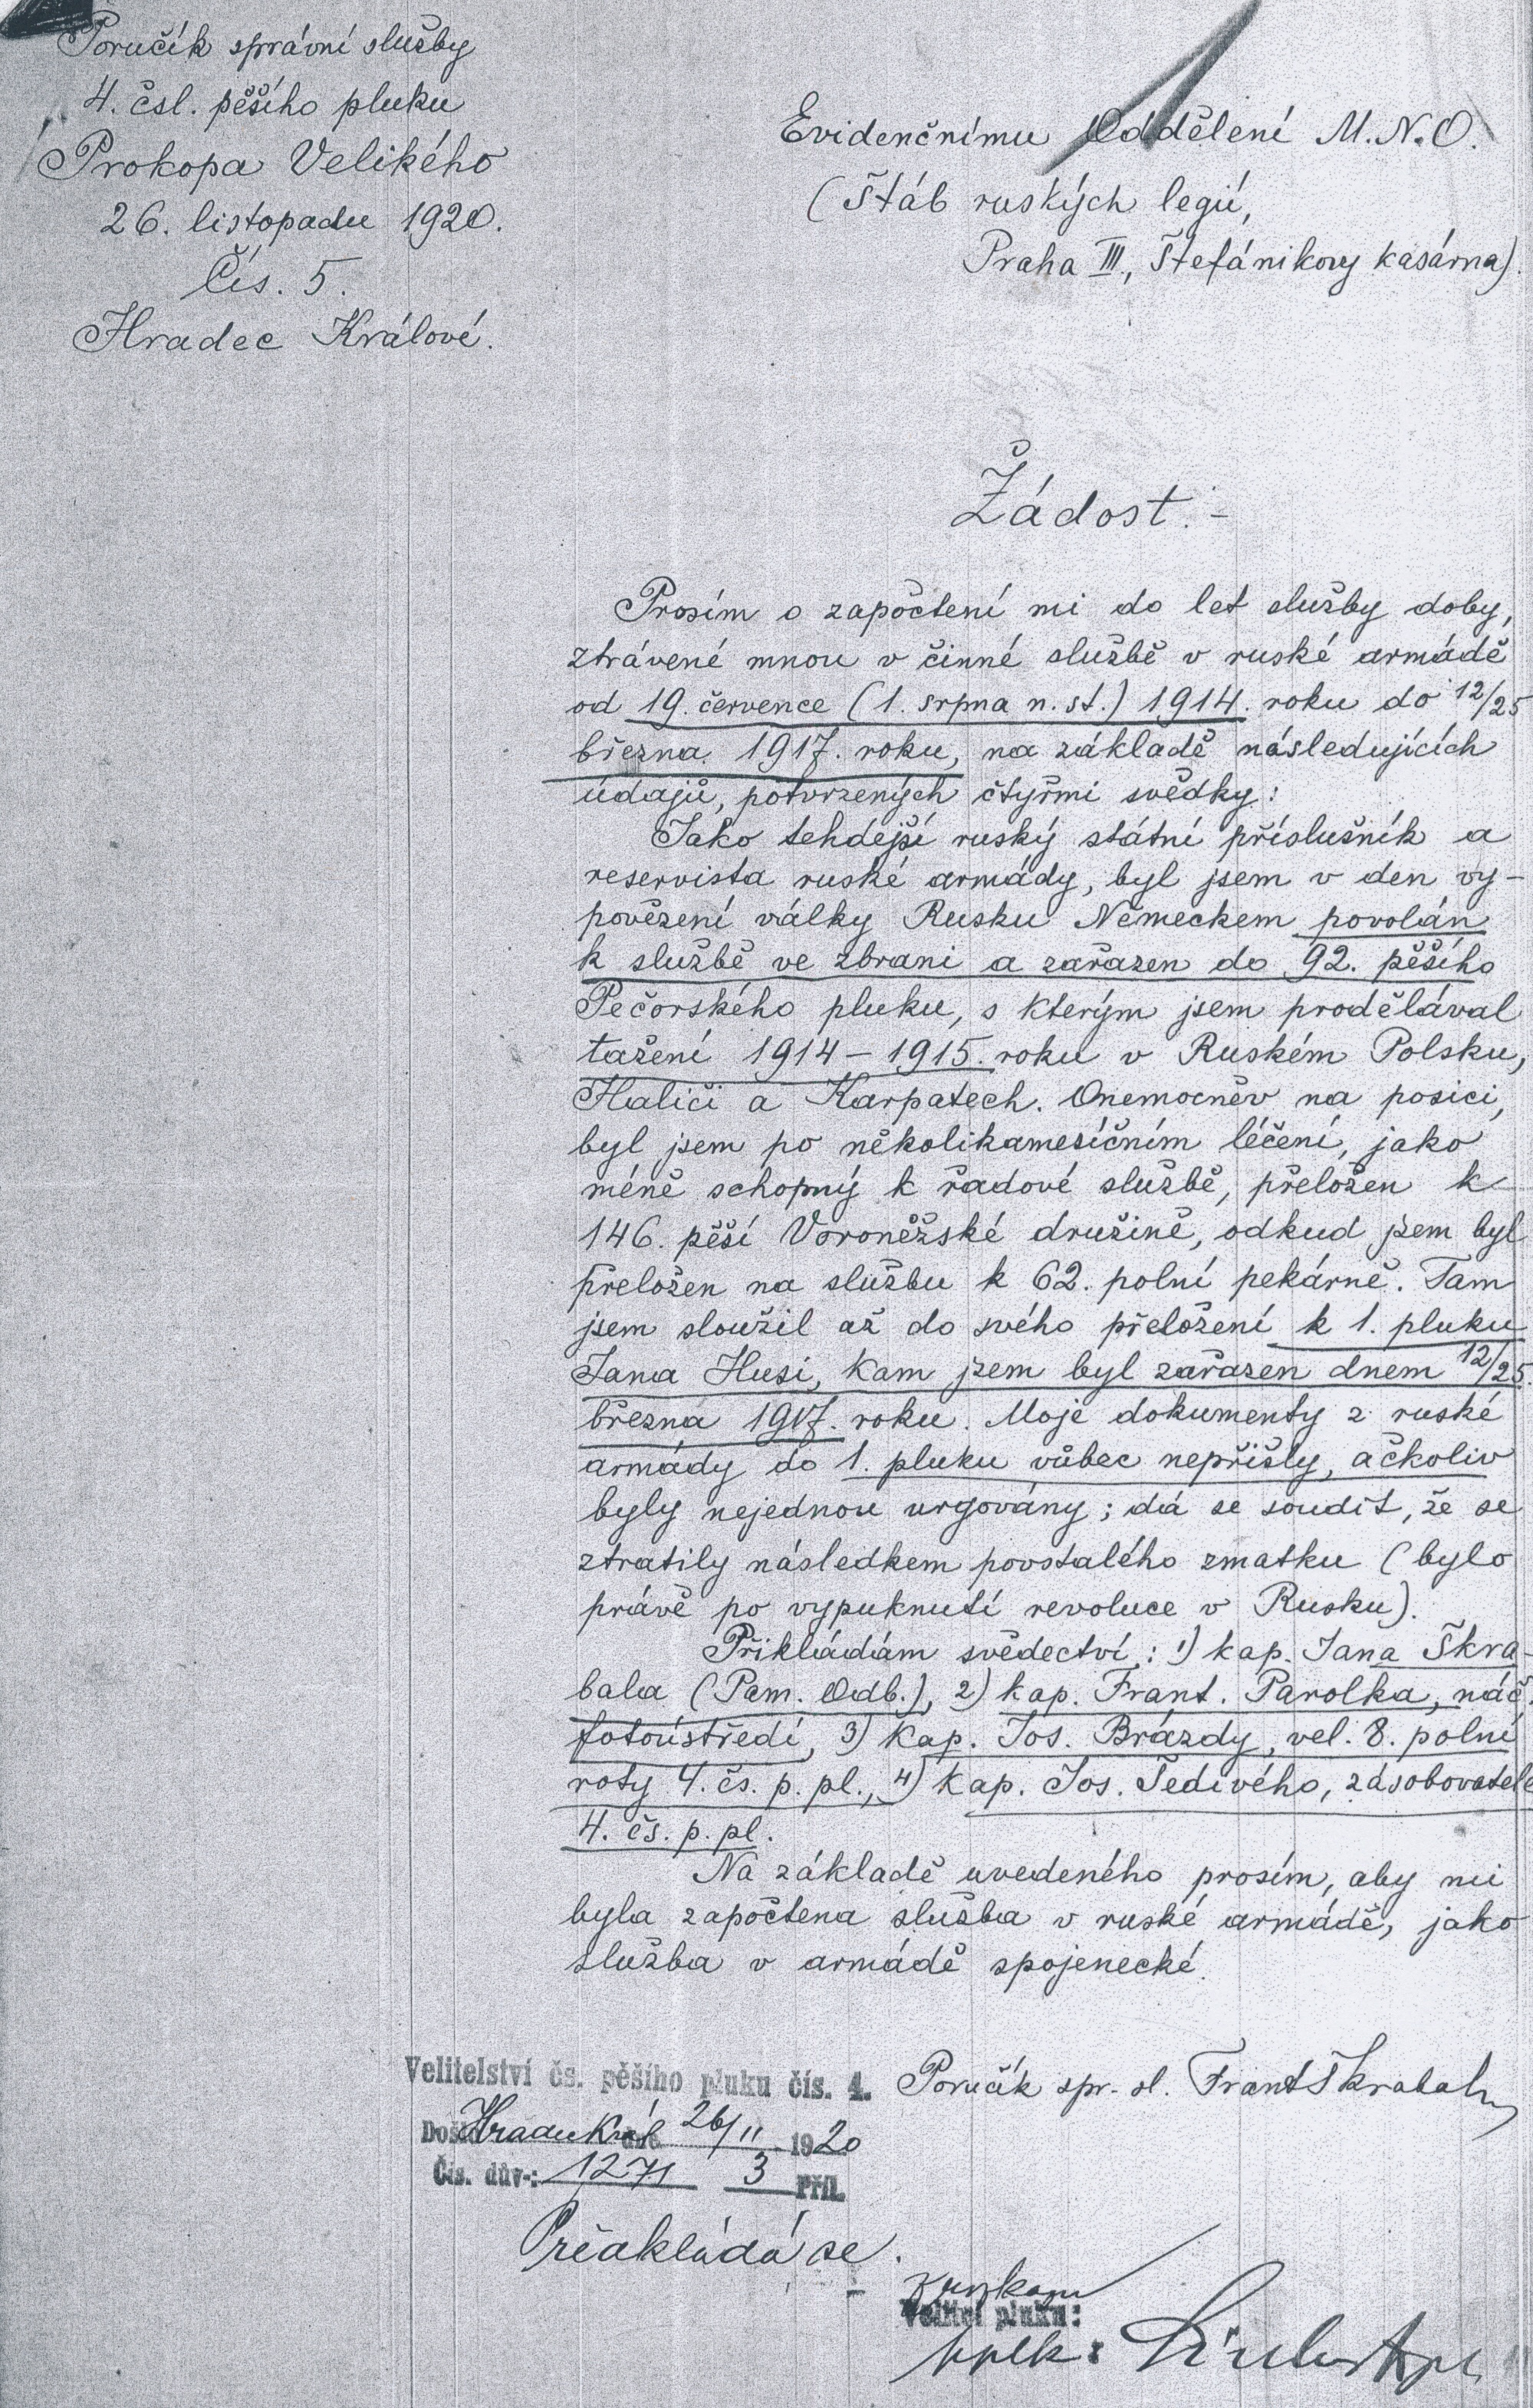 Poručík správní služby
4. čsl. pěšího pluku
Prokopa Velikého
26. listopadu 1920.
Čís. 5.
Hradec Králové.
Evidenčnímu Oddělení M.N.O.
(Štáb ruských legií,
Praha III, Štefánikovy kasárna).
Žádost.-
Prosím o započtení mi do let služby doby,
ztrávené mnou v činné službě v ruské armádě
od 19. července (1. srpna n. st.) 1914. roku do 12/25
března 1917. roku, na základě následujících
údajů, potvrzených čtyřmi svědky:
Jako tehdejší ruský státní příslušník a
reservista ruské armády, byl jsem v den vy-
povězení války Rusku Německem povolán
k službě ve zbrani a zařazen do 92. pěšího
Pečorského pluku, s kterým jsem prodělával
tažení 1914 – 1915. roku v Ruském Polsku,
Haliči a Karpatech. Onemocněv na posici,
byl jsem po několikaměsíčním léčení, jako
méně schopný k řadové službě, přeložen k
146. pěší Voroněžské družině, odkud jsem byl
přeložen na službu k 62. polní pekárně. Tam
jsem sloužil až do svého přeložení k 1. pluku
Jana Husi, kam jsem byl zařazen dnem 12/25.
března 1917. roku. Moje dokumenty z ruské
armády do 1. pluku vůbec nepřišly, ačkoliv
byly nejednou urgovány; dá se soudit, že se
ztratily následkem povstalého zmatku (bylo
právě po vypuknutí revoluce v Rusku).
Přikládám svědectví: 1) kap. Jana Škra-
bala (Pam. Odb.), 2) kap. Frant. Parolka, náč.
fotoústředí, 3) kap. Jos. Brázdy, vel. 8. polní
roty 4. čs. p. pl., 4) kap. Jos. Šedivého, zásobovatele
4. čs. p. pl.
Na základě uvedeného prosím, aby mi
byla započtena služba v ruské armádě, jako
služba v armádě spojenecké.
Poručík spr. sl. Frant Škrabal
Velitelství čs. pěšího pluku čís. 4.
Došlo Hradec Král dne 26/11 1920
Čís. dův.: 1271 3 Příl.
Předkládá se.
Velitel pluku:
pplk.